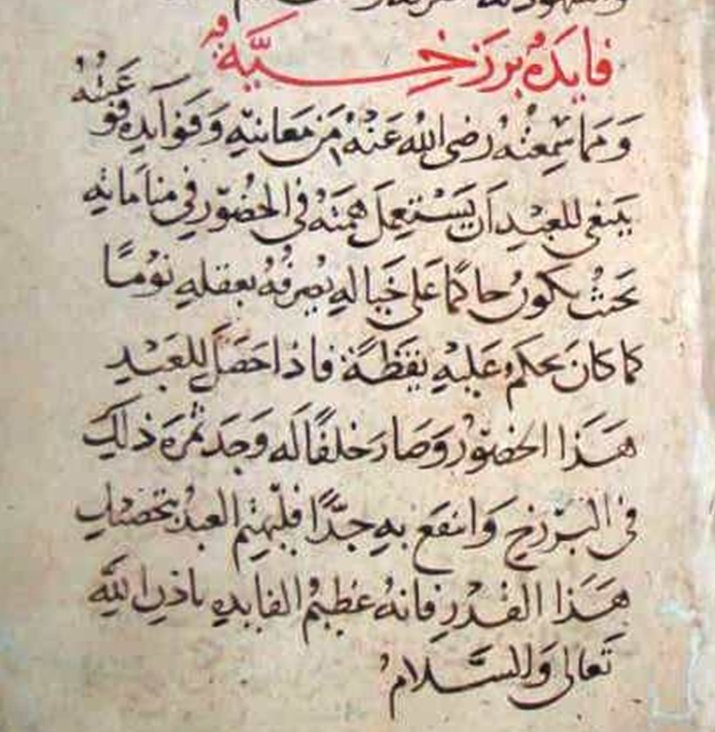 فايدة برزخية
ومما سمعته رضى الله عنه من معانيه وفوايده قوعته
ينبغى للعبد ان يستعمل همته فى الحضور فى مناماته
بحيث يكون حاكما على خياله يصرفه بعقله نوما
كما كان يحكم عليه يقظة فاذا حصل للعبد
هذا الحضور وصار خلقا له وجد ثمرة ذلك
فى البرزخ وانتفع به جدا فليهتم العبد بتحصيل
هذا القدر فانه عظيم الفايدة باذن الله
تعالى والسلام